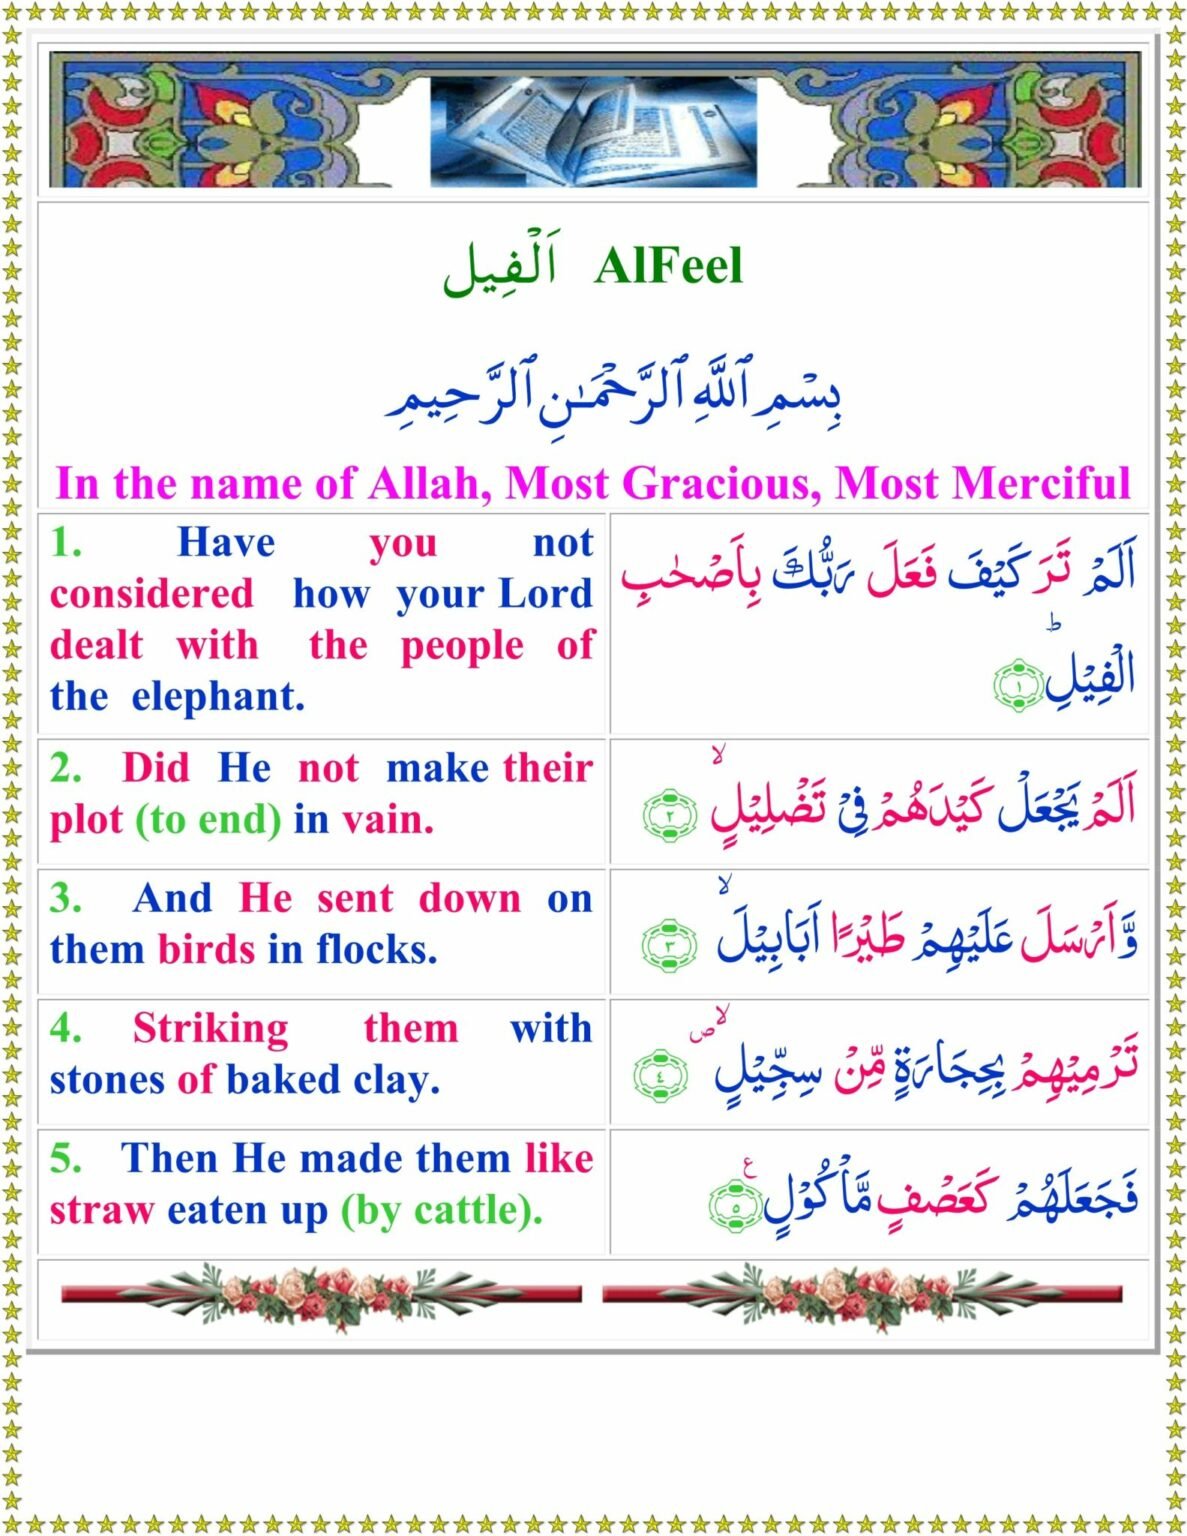 اَلْفِيل AlFeel
بِسْمِ ٱللَّهِ ٱلرَّحْمَـٰنِ ٱلرَّحِيمِ
In the name of Allah, Most Gracious, Most Merciful
1. Have you not
considered how your Lord
dealt with the people of
the elephant.
اَلَمْ تَرَ كَيْفَ فَعَلَ رَبُّكَ بِاَصْحٰبِ
الْفِيْلِؕ ۝۱
2. Did He not make their
plot (to end) in vain.
اَلَمْ يَجْعَلْ كَيْدَهُمْ فِيْ تَضْلِيْلٍۙ ۝۲
3. And He sent down on
them birds in flocks.
وَّاَرْسَلَ عَلَيْهِمْ طَيْرًا اَبَابِيْلَۙ ۝۳
4. Striking them with
stones of baked clay.
تَرْمِيْهِمْ بِحِجَارَةٍ مِّنْ سِجِّيْلٍ۪ۙ ۝٤
5. Then He made them like
straw eaten up (by cattle).
فَجَعَلَهُمْ كَعَصْفٍ مَّاْكُوْلٍ ۝۵ ع